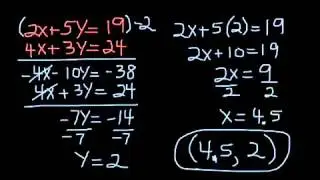 (2x+5y=19)-2
4x+3y=24
-4x-10y=-38
4x+3y=24
-7y=-14
-7 -7
y=2
2x+5(2)=19
2x+10=19
2x=9
2 2
x=4.5
(4.5, 2)